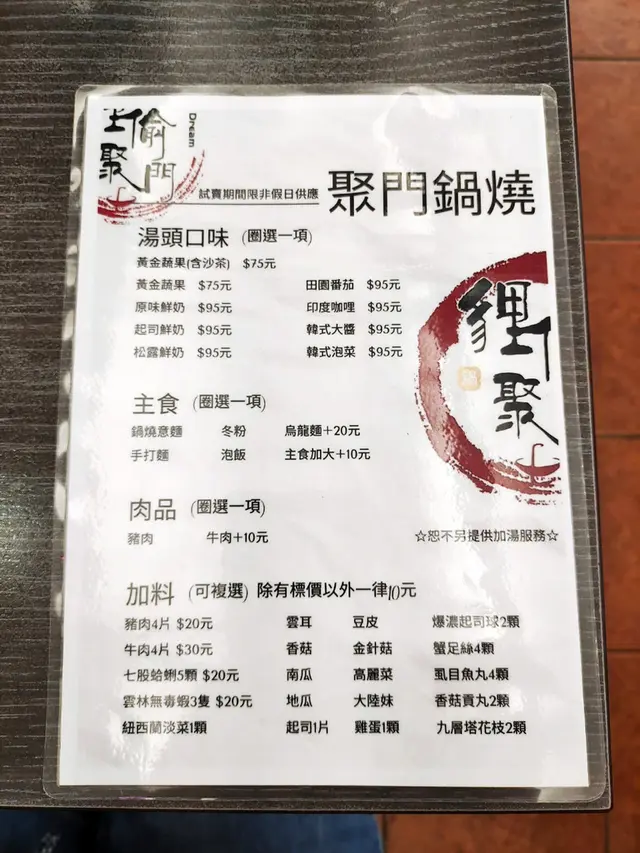 偷門
聚
Dream
試賣期間限非假日供應
聚門鍋燒
湯頭口味 (圈選一項)
黃金蔬果(含沙茶) $75元
黃金蔬果 $75元 田園番茄 $95元
原味鮮奶 $95元 印度咖哩 $95元
起司鮮奶 $95元 韓式大醬 $95元
松露鮮奶 $95元 韓式泡菜 $95元
聚
主食 (圈選一項)
鍋燒意麵 冬粉 烏龍麵+20元
手打麵 泡飯 主食加大+10元
肉品 (圈選一項)
豬肉 牛肉+10元
☆恕不另提供加湯服務☆
加料 (可複選) 除有標價以外一律10元
豬肉4片 $20元 雲耳 豆皮 爆濃起司球2顆
牛肉4片 $30元 香菇 金針菇 蟹足絲4顆
七股蛤蜊5顆 $20元 南瓜 高麗菜 虱目魚丸4顆
雲林無毒蝦3隻 $20元 地瓜 大陸妹 香菇貢丸2顆
紐西蘭淡菜1顆 起司1片 雞蛋1顆 九層塔花枝2顆